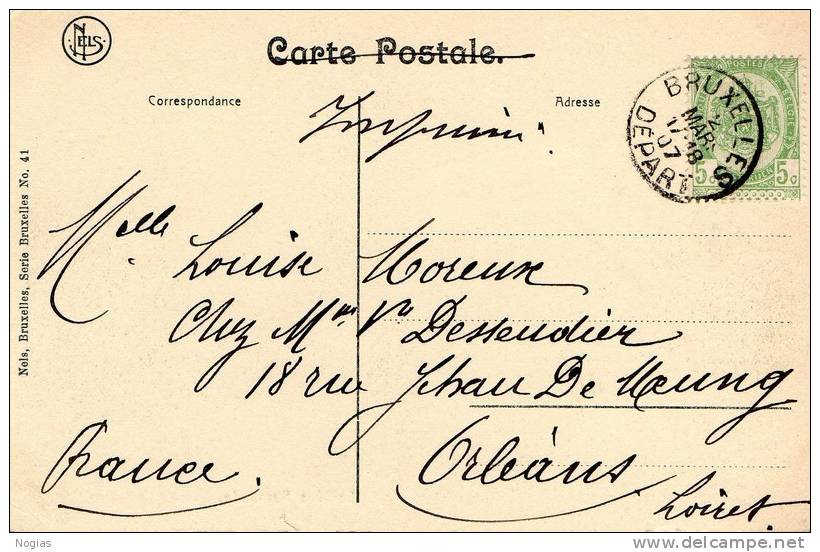 NELS
Carte Postale.
Correspondance
Adresse
Imprimé.
POSTES
BELGIE
5c 5c
BRUXELLES
MAR.
17-18
07
DEPART
Nels, Bruxelles, Serie Bruxelles No. 41
Melle Louise Moreux
Chez Mme Ve Dessendier
18 rue Jehan De Meung
Orléans
Loiret
France.
Nogias
www.delcampe.net